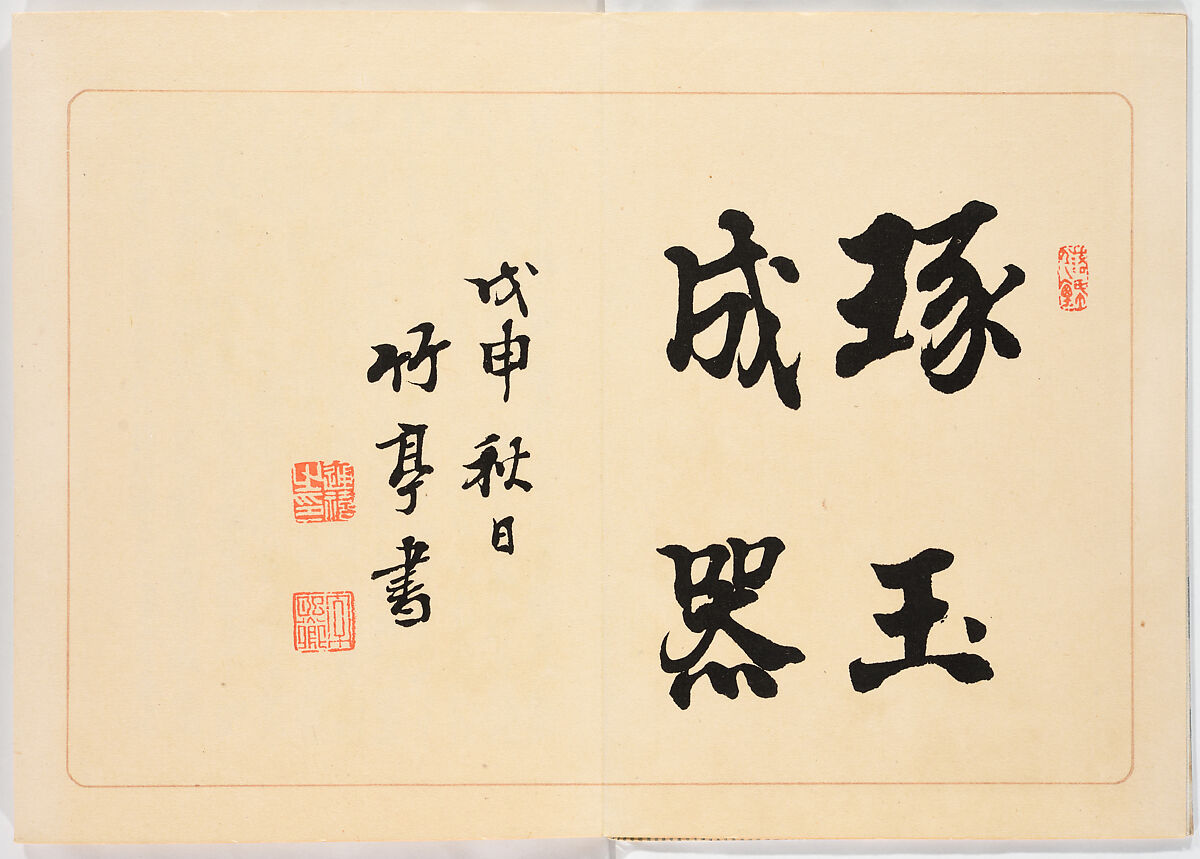 琢玉
成器
戊申秋日
竹亭書